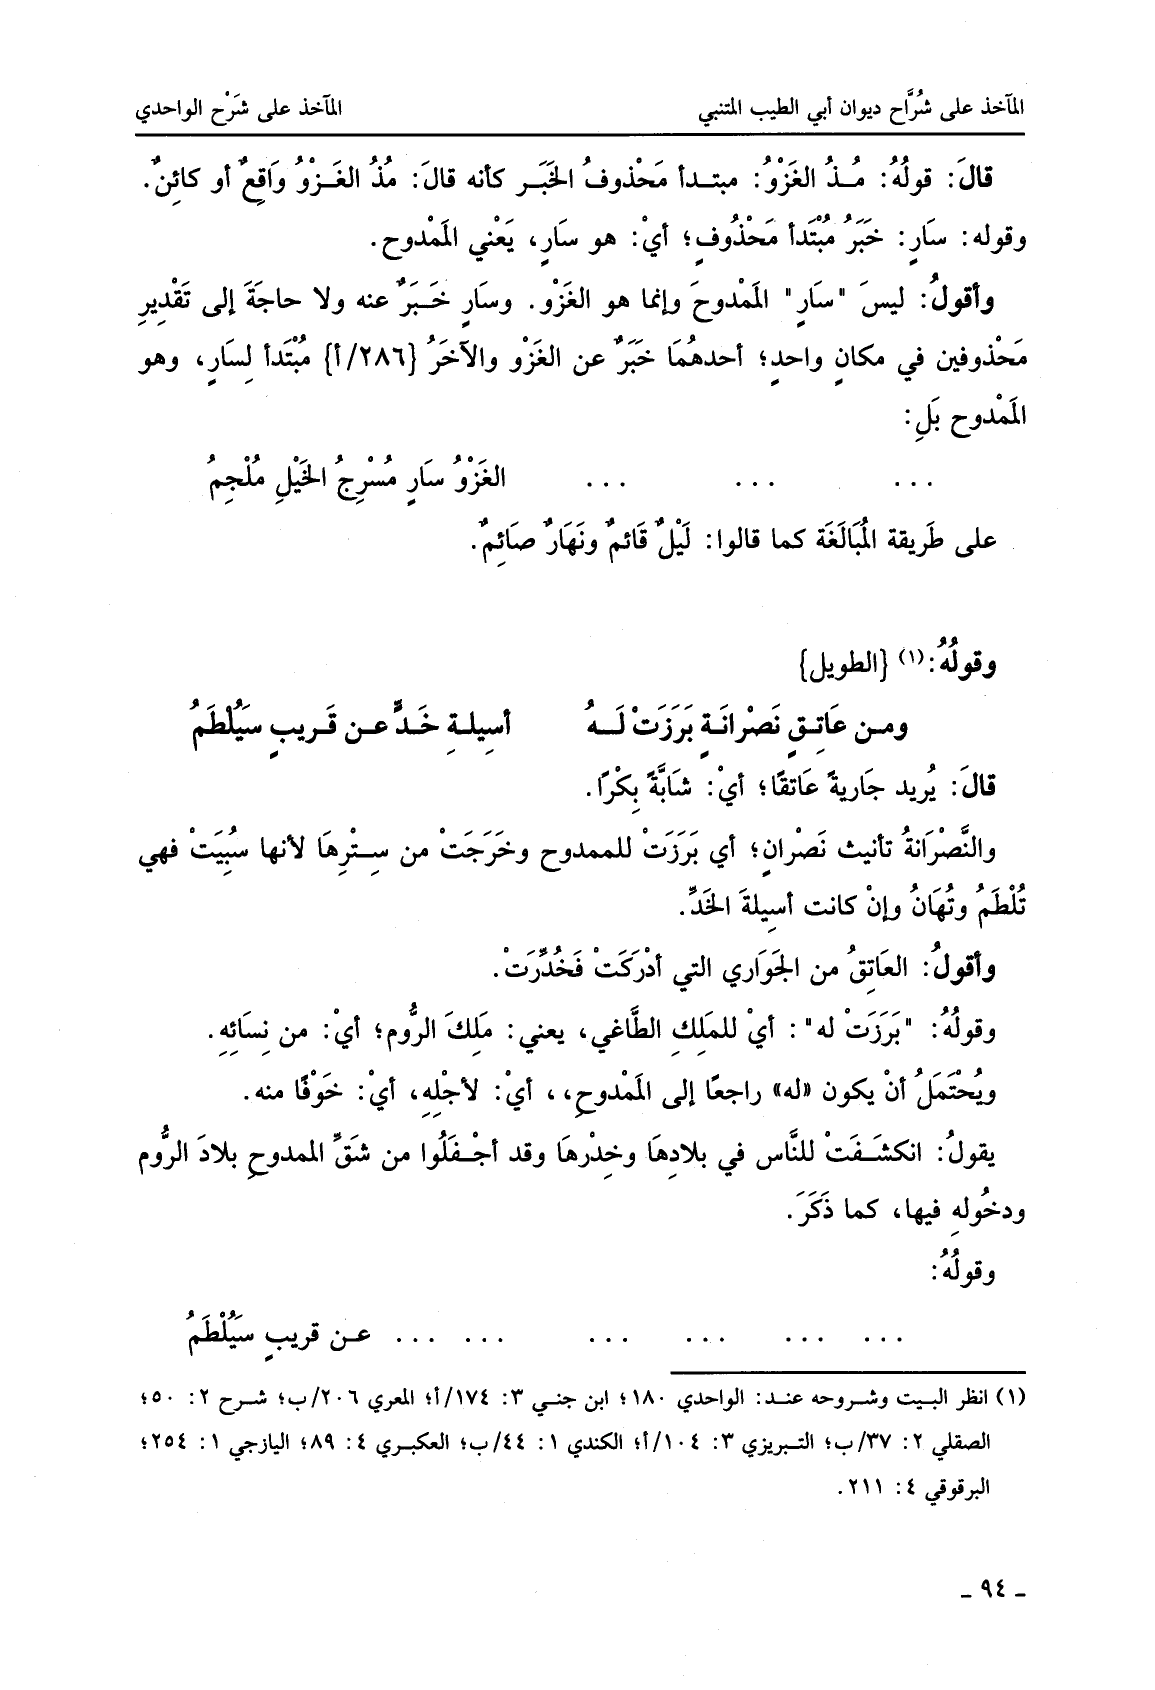 المآخذ على شُرَّاح ديوان أبي الطيب المتنبي المآخذ على شَرْح الواحدي
قالَ: قولُهُ: مُـذُ الغَزْوُ: مبتـدأ مَحْذوفُ الخَبَـر كأنه قالَ: مُذُ الغَـزْوُ وَاقِعٌ أو كائنٌ.
وقوله: سَارٍ: خَبَرُ مُبْتَدأ مَحْذُوفٍ؛ أيْ: هو سَارٍ، يَعْني المَمْدوح.
وأقولُ: ليسَ "سَارٍ" المَمْدوحَ وإنما هو الغَزْو. وسَارٍ خَـبَرٌ عنه ولا حاجَةَ إلى تَقْدِيرِ
مَحْذوفين في مكانٍ واحدٍ؛ أحدهُمَا خَبَرٌ عن الغَزْو والآخَرُ {٢٨٦/أ} مُبْتَدأ لِسَارٍ، وهو
المَمْدوح بَلِ:
... ... ... الغَزْوُ سَارٍ مُسْرِجُ الخَيْلِ مُلْجِمُ
على طَريقة المُبَالَغَة كما قالوا: لَيْلٌ قَائمٌ ونَهَارٌ صَائِمٌ.
وقولُهُ:(١) {الطويل}
ومـن عَاتِـقٍ نَصْرانَـةٍ بَرَزَتْ لَـهُ أسِيلـةِ خَـدٍّ عـن قَـريبٍ سَيُلْطَمُ
قالَ: يُريد جَاريةً عَاتقًا؛ أيْ: شَابَّةً بِكْرًا.
والنَّصْرَانَةُ تأنيث نَصْرانٍ؛ أي بَرَزَتْ للممدوح وخَرَجَتْ من سِـتْرِهَا لأنها سُبِيَتْ فهي
تُلْطَمُ وتُهَانُ وإنْ كانت أسِيلةَ الخَدِّ.
وأقولُ: العَاتِقُ من الجَوَاري التي أدْرَكَتْ فَخُدِّرَتْ.
وقولُهُ: "بَرَزَتْ له" : أيْ للمَلِكِ الطَّاغي، يعني: مَلِكَ الرُّوم؛ أيْ: من نِسَائِهِ.
ويُحْتَمَلُ أنْ يكون «له» راجعًا إلى المَمْدوحِ،، أيْ: لأجْلِهِ، أيْ: خَوْفًا منه.
يقولُ: انكشَـفَتْ للنَّاس في بلادِهَا وخِدْرهَا وقد أجْـفَلُوا من شَقِّ الممدوحِ بلادَ الرُّوم
ودخُولِهِ فيها، كما ذَكَرَ.
وقولُهُ:
... ... ... ... ... ... عـن قريبٍ سَيُلْطَمُ
(١) انظر البـيت وشـروحه عنـد: الواحدي ١٨٠؛ ابن جنـي ٣: ١٧٤/أ؛ المعري ٢٠٦/ب؛ شـرح ٢: ٥٠؛
الصقلي ٢: ٣٧/ب؛ التـبريزي ٣: ١٠٤/أ؛ الكندي ١: ٤٤/ب؛ العكبـري ٤: ٨٩؛ اليازجي ١: ٢٥٤؛
البرقوقي ٤: ٢١١.
ـ ٩٤ ـ